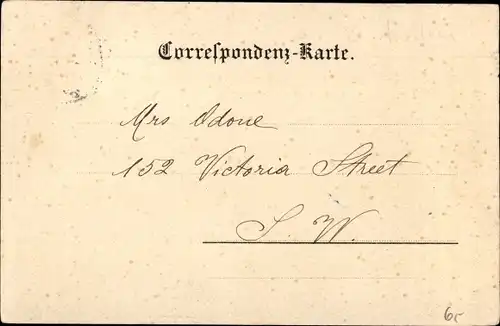 Correspondenz-Karte.
Mrs Odone
152 Victoria Street
S. W.